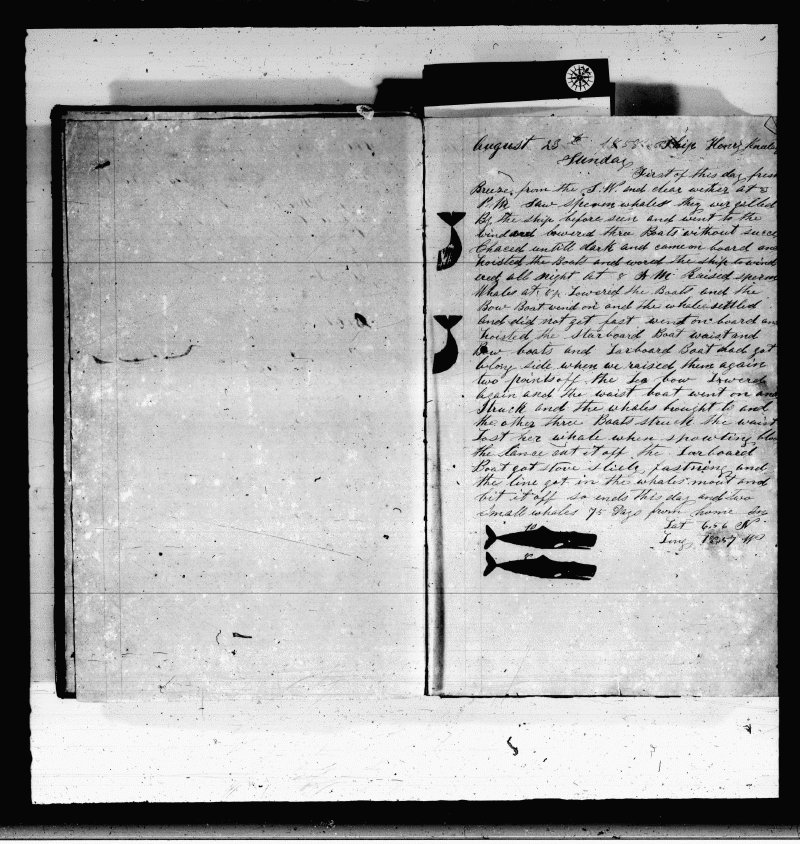 August 23th 185 Ship Henry
Sunday
First of this day fresh
Breze from the S.W. and clear wether at 3
P.M. Saw sperm whales they wer gallied
By the ship before seen and went to the
windard lowered thre Boats without succe
Chaced untill dark and came on board and
hoisted the Boats and wored the ship to wind
erd all night at 8 A M Raised sperm
Whales at Lowered the Boats and the
Bow Boat wend on and the whales settled
and did not get fast wend on board an
hoisted the Starboard Boat waist and
Bow boats and Larboard Boat had got
along side when we raised them again
two points off the Le bow Lowered
again and the waist boat went on and
Struck and the whales brought to and
the other thre Boats struck the waist
Lost her whale when spowting blo
the lance cut it off the Larboard
Boat got stove slitely fastning and
the line got in the whales mout and
bit it off so ends this day and two
small whales 75 Days from home
Lat 6.56 N
Long W